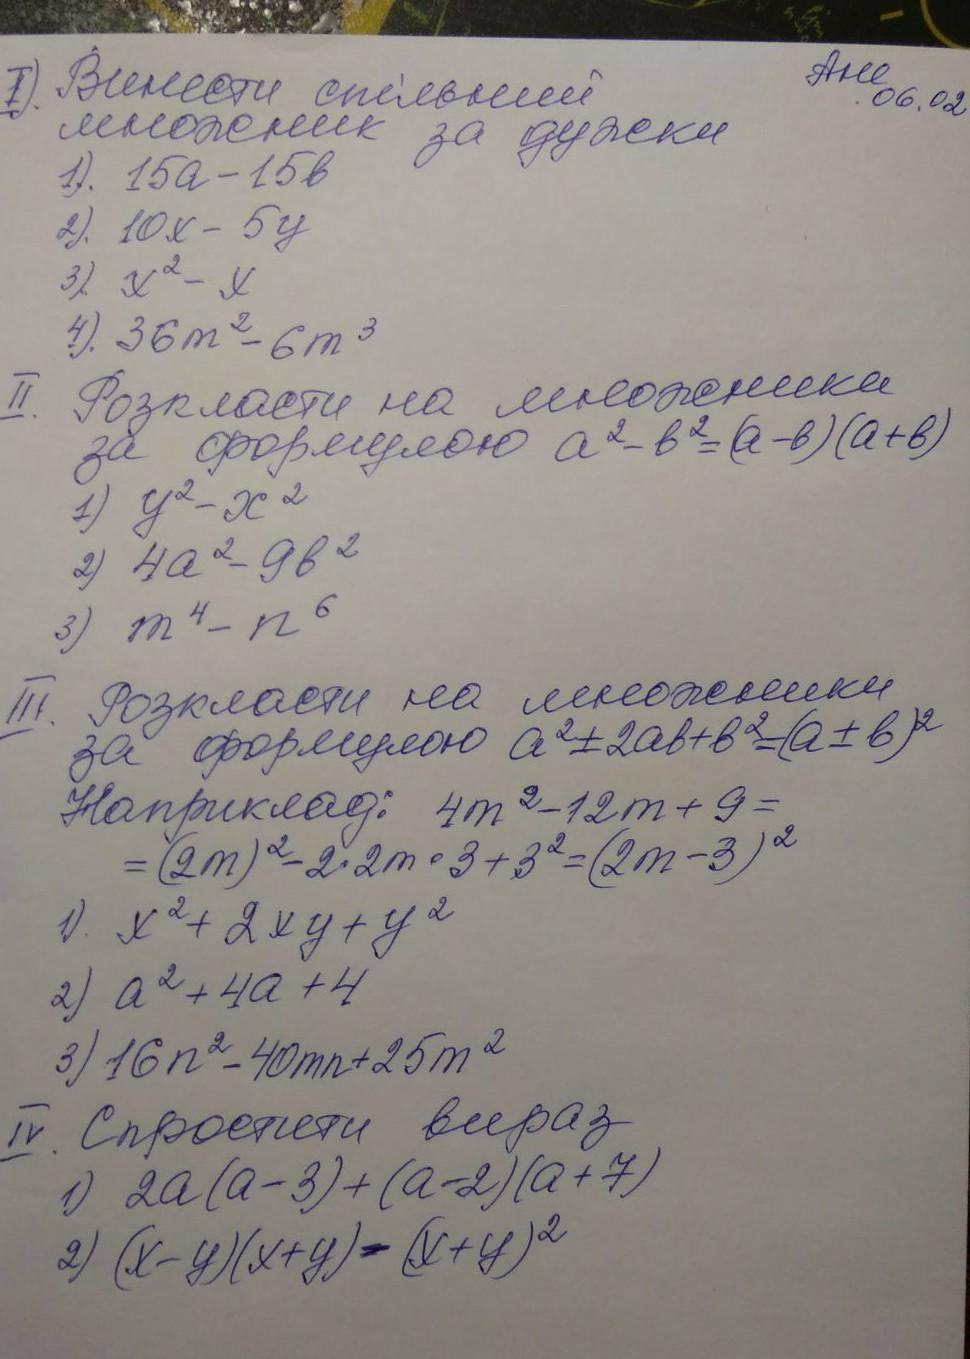 Ане
06.02
I). Винести спільний
множник за дужки
1). 15a - 15b
2). 10x - 5y
3). x² - x
4). 36m² - 6m³
II. Розкласти на множники
за формулою a² - b² = (a-b)(a+b)
1) y² - x²
2) 4a² - 9b²
3) m⁴ - n⁶
III. Розкласти на множники
за формулою a² ± 2ab + b² = (a ± b)²
Наприклад: 4m² - 12m + 9 =
= (2m)² - 2·2m·3 + 3² = (2m - 3)²
1). x² + 2xy + y²
2) a² + 4a + 4
3) 16n² - 40mn + 25m²
IV. Спростити вираз
1) 2a(a-3) + (a-2)(a+7)
2) (x-y)(x+y) - (x+y)²